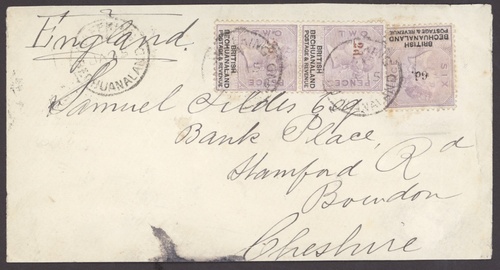 England.
BRITISH
BECHUANALAND
POSTAGE & REVENUE
BRITISH
BECHUANALAND
POSTAGE & REVENUE
2d.
BRITISH
BECHUANALAND
POSTAGE & REVENUE
6d.
Samuel Fildes Esq
Bank Place,
Stamford Rd
Bowdon
Cheshire